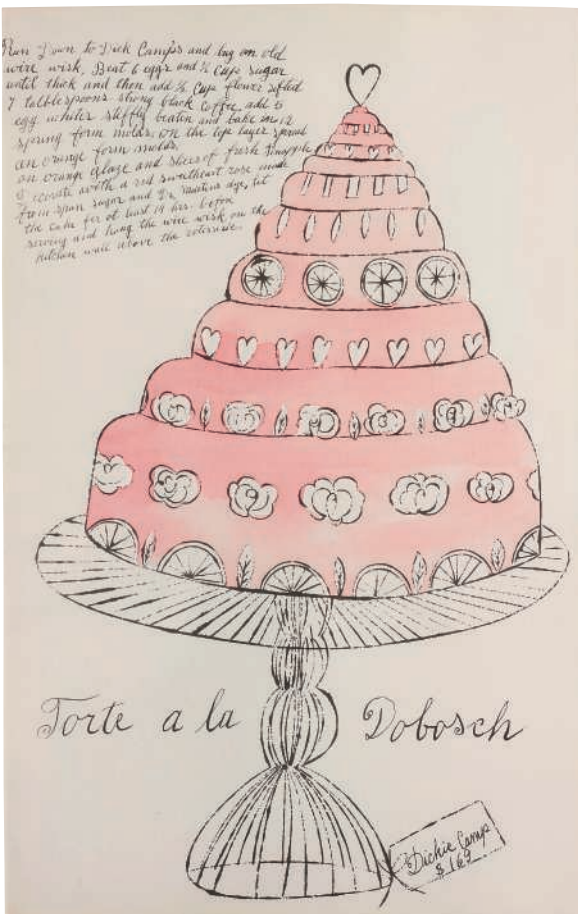 Run Down to Dick Camp's and buy an old
wire wisk. Beat 6 eggs and ½ Cups sugar
until thick and then add ½ Cups flower sifted
7 tabblespoons strong black coffee, add 5
egg whites stiffly beaten and bake in 12
spring form molds. on the tope layer spread
an orange form molds.
on orange glaze and slices of fresh pinapple
Decorate with a red sweetheart rose made
from spun sugar and Dr. dye, let
the cake for at least 14 hrs. before
serving and hang the wire wisk on the
kitchen wall above the
Torte a la Dobosch
Dickie Camp
$ 1.69